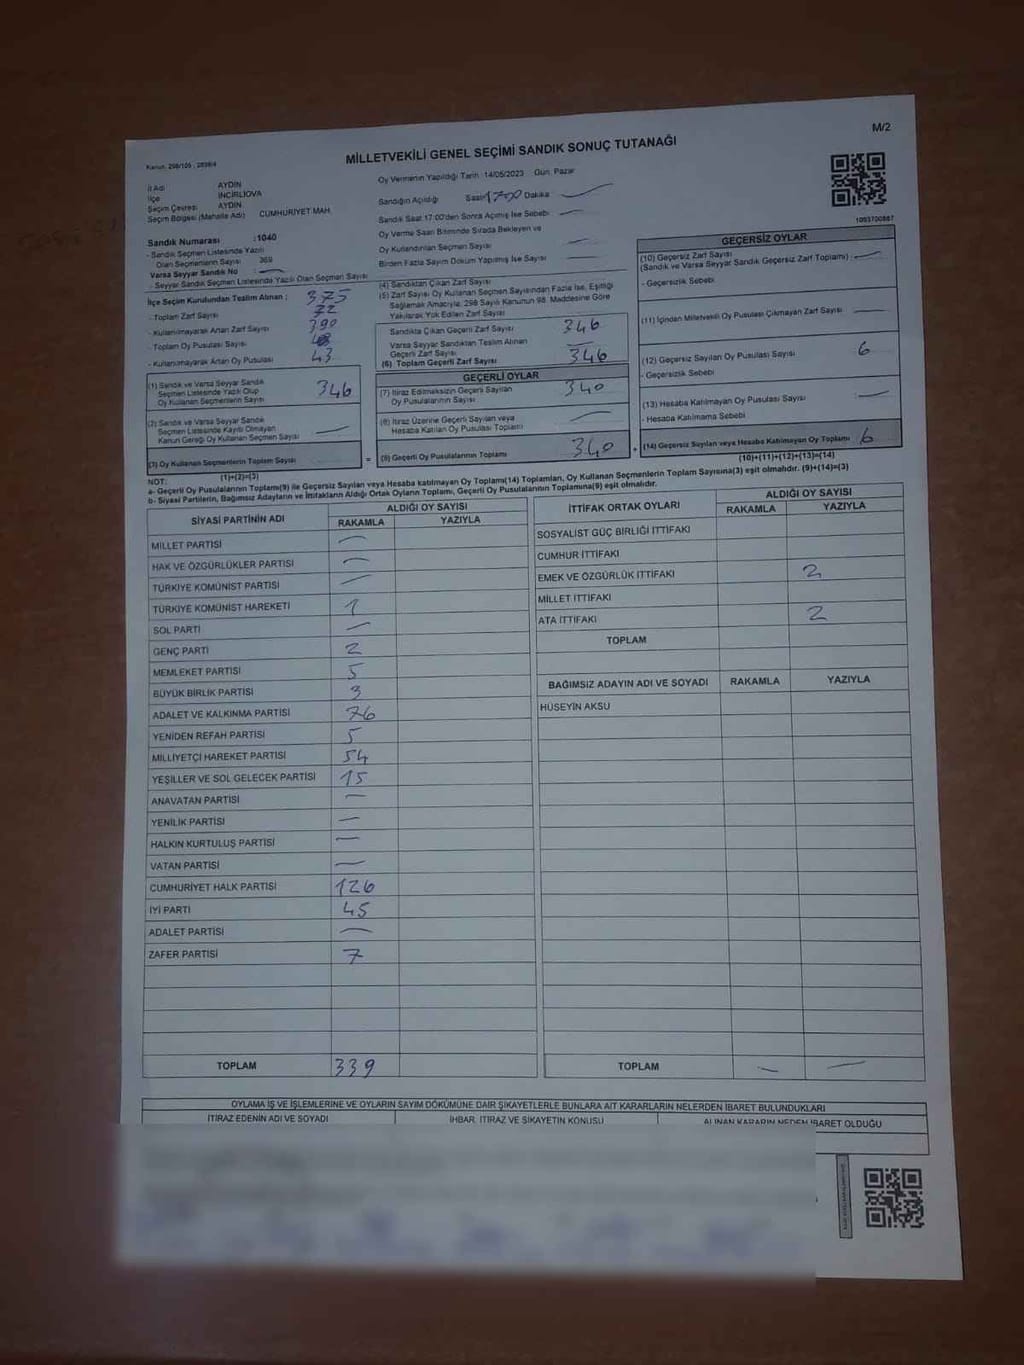 M/2
Kanun: 298/105 , 2839/4
MİLLETVEKİLİ GENEL SEÇİMİ SANDIK SONUÇ TUTANAĞI
İl Adı AYDIN
İlçe İNCİRLİOVA
Seçim Çevresi AYDIN
Seçim Bölgesi (Mahalle Adı) CUMHURİYET MAH.
Sandık Numarası :1040
- Sandık Seçmen Listesinde Yazılı
Olan Seçmenlerin Sayısı 369
Varsa Seyyar Sandık No
- Seyyar Sandık Seçmen Listesinde Yazılı Olan Seçmen Sayısı
İlçe Seçim Kurulundan Teslim Alınan ;
- Toplam Zarf Sayısı 375
- Kullanılmayarak Artan Zarf Sayısı
- Toplam Oy Pusulası Sayısı 390
- Kullanılmayarak Artan Oy Pusulası 43
(1) Sandık ve Varsa Seyyar Sandık
Seçmen Listesinde Yazılı Olup
Oy Kullanan Seçmenlerin Sayısı 346
(2) Sandık ve Varsa Seyyar Sandık
Seçmen Listesinde Kayıtlı Olmayan
Kanun Gereği Oy Kullanan Seçmen Sayısı —
(3) Oy Kullanan Seçmenlerin Toplam Sayısı
(1)+(2)=(3)
Oy Vermenin Yapıldığı Tarih 14/05/2023 Gün: Pazar
Sandığın Açıldığı Saat 17:00 Dakika —
Sandık Saat 17:00'den Sonra Açılmış İse Sebebi —
Oy Verme Saati Bitiminde Sırada Bekleyen ve
Oy Kullandırılan Seçmen Sayısı —
Birden Fazla Sayım Döküm Yapılmış İse Sayısı —
(4) Sandıktan Çıkan Zarf Sayısı
(5) Zarf Sayısı Oy Kullanan Seçmen Sayısından Fazla İse, Eşitliği
Sağlamak Amacıyla, 298 Sayılı Kanunun 98. Maddesine Göre
Yakılarak Yok Edilen Zarf Sayısı
Sandıkta Çıkan Geçerli Zarf Sayısı 346
Varsa Seyyar Sandıktan Teslim Alınan
Geçerli Zarf Sayısı —
(6) Toplam Geçerli Zarf Sayısı 346
GEÇERLİ OYLAR
(7) İtiraz Edilmeksizin Geçerli Sayılan
Oy Pusulalarının Sayısı 340
(8) İtiraz Üzerine Geçerli Sayılan veya
Hesaba Katılan Oy Pusulası Toplamı —
= (9) Geçerli Oy Pusulalarının Toplamı 340
1093700867
GEÇERSİZ OYLAR
(10) Geçersiz Zarf Sayısı
(Sandık ve Varsa Seyyar Sandık Geçersiz Zarf Toplamı) : —
- Geçersizlik Sebebi
(11) İçinden Milletvekili Oy Pusulası Çıkmayan Zarf Sayısı —
(12) Geçersiz Sayılan Oy Pusulası Sayısı 6
- Geçersizlik Sebebi
(13) Hesaba Katılmayan Oy Pusulası Sayısı —
- Hesaba Katılmama Sebebi
+ (14) Geçersiz Sayılan veya Hesaba Katılmayan Oy Toplamı 6
(10)+(11)+(12)+(13)=(14)
NOT:
a- Geçerli Oy Pusulalarının Toplamı(9) ile Geçersiz Sayılan veya Hesaba katılmayan Oy Toplamı(14) Toplamları, Oy Kullanan Seçmenlerin Toplam Sayısına(3) eşit olmalıdır. (9)+(14)=(3)
b- Siyasi Partilerin, Bağımsız Adayların ve İttifakların Aldığı Ortak Oyların Toplamı, Geçerli Oy Pusulalarının Toplamına(9) eşit olmalıdır.
SİYASİ PARTİNİN ADI ALDIĞI OY SAYISI
RAKAMLA YAZIYLA
MİLLET PARTİSİ —
HAK VE ÖZGÜRLÜKLER PARTİSİ —
TÜRKİYE KOMÜNİST PARTİSİ —
TÜRKİYE KOMÜNİST HAREKETİ 1
SOL PARTİ —
GENÇ PARTİ 2
MEMLEKET PARTİSİ 5
BÜYÜK BİRLİK PARTİSİ 3
ADALET VE KALKINMA PARTİSİ 76
YENİDEN REFAH PARTİSİ 5
MİLLİYETÇİ HAREKET PARTİSİ 54
YEŞİLLER VE SOL GELECEK PARTİSİ 15
ANAVATAN PARTİSİ —
YENİLİK PARTİSİ —
HALKIN KURTULUŞ PARTİSİ —
VATAN PARTİSİ —
CUMHURİYET HALK PARTİSİ 126
İYİ PARTİ 45
ADALET PARTİSİ —
ZAFER PARTİSİ 7
TOPLAM 339
İTTİFAK ORTAK OYLARI ALDIĞI OY SAYISI
RAKAMLA YAZIYLA
SOSYALİST GÜÇ BİRLİĞİ İTTİFAKI
CUMHUR İTTİFAKI
EMEK VE ÖZGÜRLÜK İTTİFAKI 2
MİLLET İTTİFAKI
ATA İTTİFAKI 2
TOPLAM
BAĞIMSIZ ADAYIN ADI VE SOYADI RAKAMLA YAZIYLA
HÜSEYİN AKSU
TOPLAM — —
OYLAMA İŞ VE İŞLEMLERİNE VE OYLARIN SAYIM DÖKÜMÜNE DAİR ŞİKAYETLERLE BUNLARA AİT KARARLARIN NELERDEN İBARET BULUNDUKLARI
İTİRAZ EDENİN ADI VE SOYADI İHBAR, İTİRAZ VE ŞİKAYETİN KONUSU ALINAN KARARIN NEDEN İBARET OLDUĞU